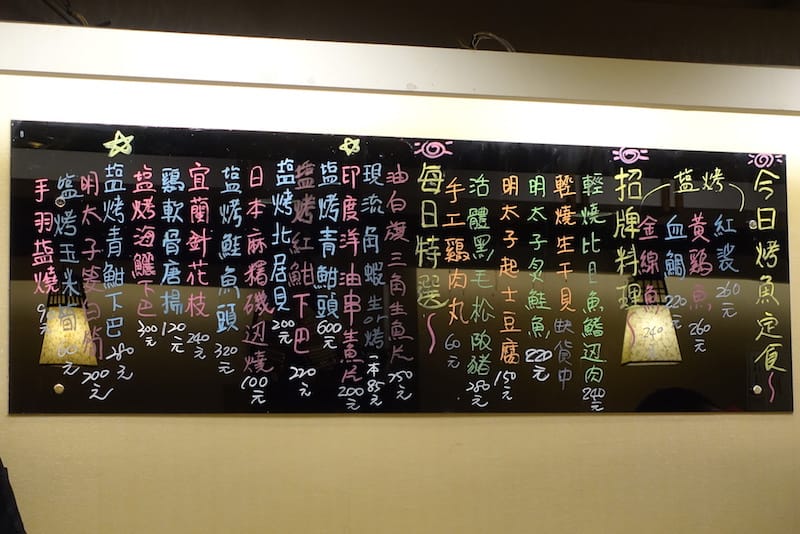 今日烤魚定食～
塩烤
紅𩺬 260元
黃鷄魚 260元
血鯛 220元
金線魚 240元
招牌料理～
輕燒比目魚鰭辺肉 240元
輕燒生干貝 缺貨中
明太子炙鮭魚 220元
明太子起士豆腐 150元
活體黑毛松阪豬 280元
手工鷄肉丸 60元
每日特選～
油白旗三角生魚片 250元
現流角蝦生or烤 一本85元
印度洋油串生魚片 200元
塩烤青魽頭 600元
塩烤紅魽下巴 220元
塩烤北居貝 200元
日本麻糬磯辺燒 100元
塩烤鮭魚頭 320元
宜蘭針花枝 240元
鷄軟骨唐揚 120元
塩烤海鱺下巴 300元
塩烤青魽下巴 280元
明太子 200元
塩烤玉米筍 元
手羽塩燒 元